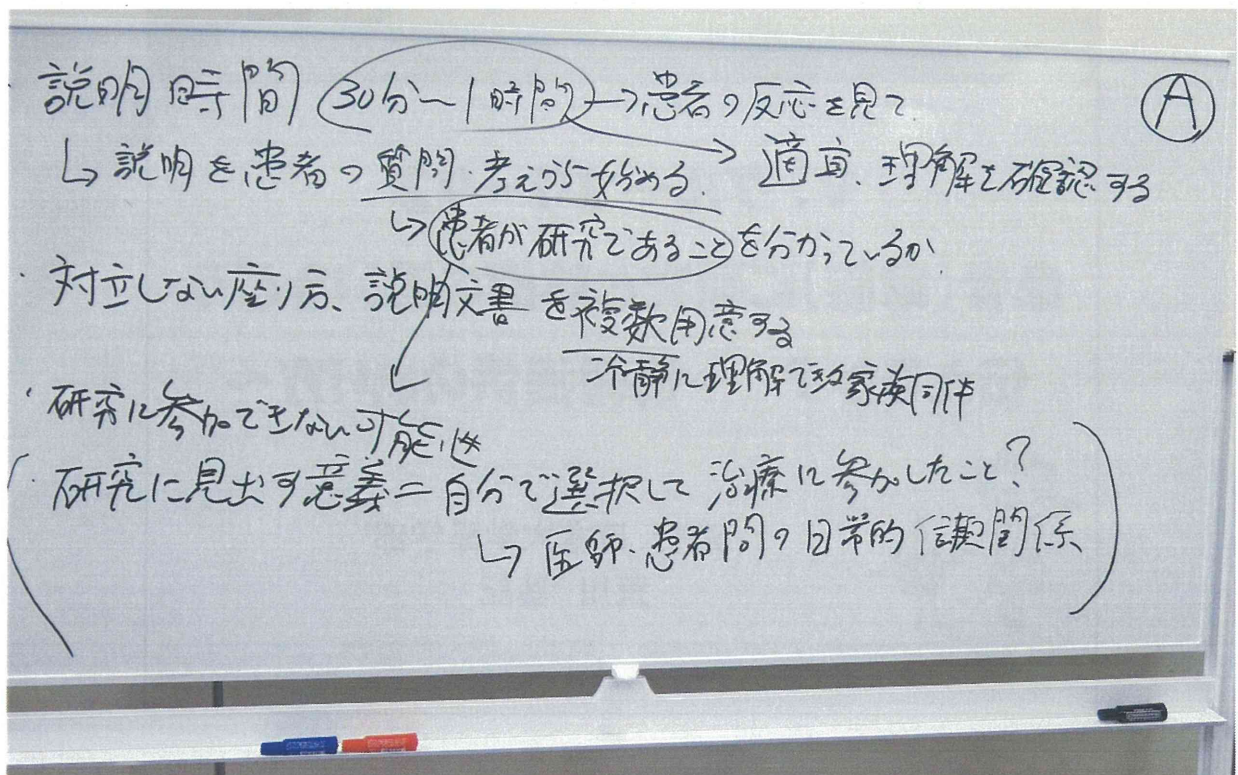 ・説明時間 30分〜1時間→患者の反応を見て
Ⓐ
↳説明を患者の質問・考えから始める。 → 適宜、理解を確認する
↳患者が研究であることを分かっているか
・対立しない座り方、説明文書を複数用意する
冷静に理解できる家族同伴
・研究に参加できない可能性
(・研究に見出す意義=自分で選択して治療に参加したこと?
↳医師・患者間の日常的信頼関係)